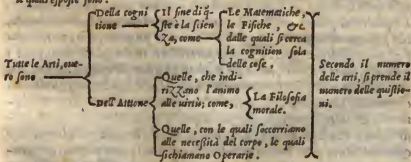 li quali esposte sono.
Della cogni
tione
Il fine di q̃-
ste è la scien
za, come
Le Matematiche,
le Fisiche, &c.
dalle quali si cerca
la cognition sola
delle cose.
Tutte le Arti, oue-
ro sono
Dell'Attione
Quelle, che indi-
rizzano l'animo
alle uirtù; come,
La Filosofia
morale.
Quelle, con le quali soccorriamo
alle necessità del corpo, le quali
si chiamano Operarie.
Secondo il numero
delle arti, si prende il
numero delle quistio-
ni.